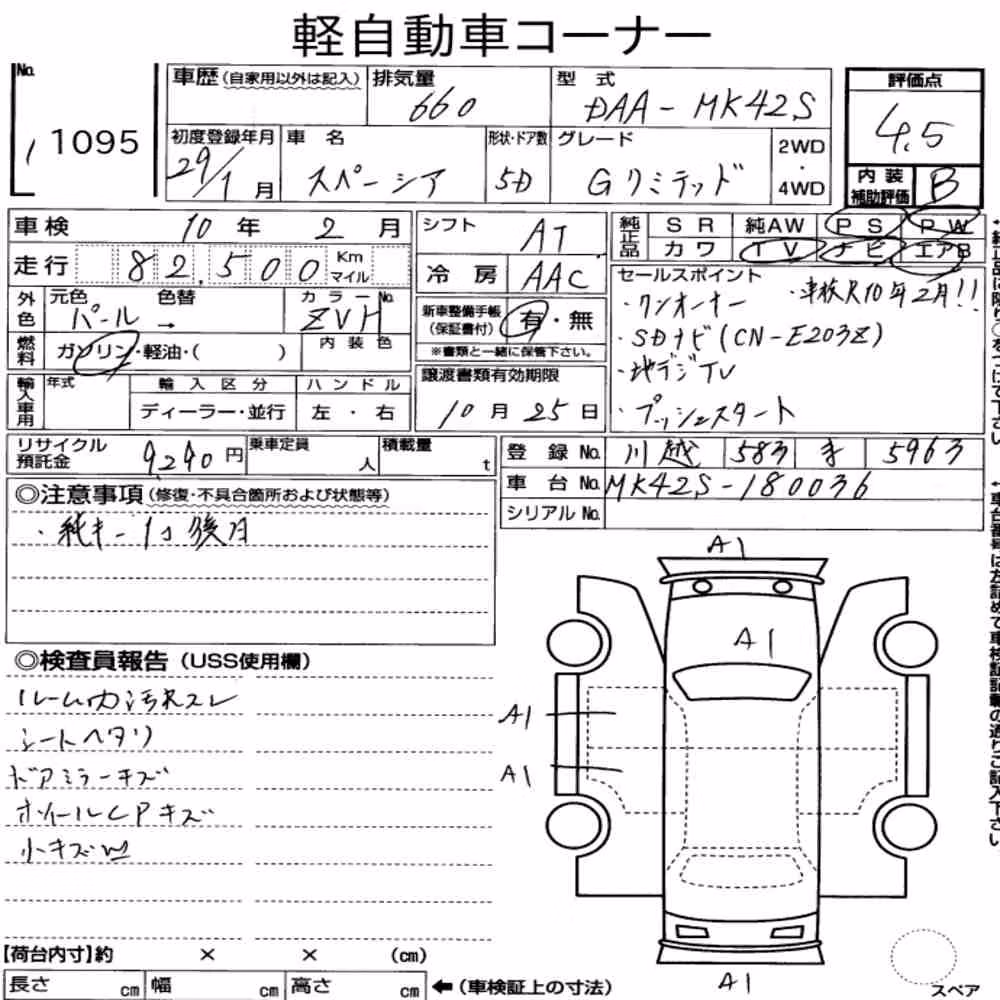 軽自動車コーナー
No. 1 1095
車歴(自家用以外は記入)
排気量 660
型式 DAA-MK42S
評価点 4.5
初度登録年月 29/1月
車名 スペーシア
形状・ドア数 5D
グレード Gリミテッド
2WD・4WD
内装補助評価 B
車検 10年 2月
走行 82,500 Km マイル
シフト AT
冷房 AAC
純正品 SR 純AW PS PW
カワ TV ナビ エアB
外色 元色 パール → 色替 カラーNo. ZVH
燃料 ガソリン・軽油・( ) 内装色
新車整備手帳(保証書付) 有・無
※書類と一緒に保管下さい。
セールスポイント
・ワンオーナー ・車検R10年2月!!
・SDナビ(CN-E203Z)
・地デジTV
・プッシュスタート
輸入車用 年式 輸入区分 ハンドル
ディーラー・並行 左・右
譲渡書類有効期限
10月25日
リサイクル預託金 9290円
乗車定員 人
積載量 t
登録No. 川越 583 5963
車台No. MK42S-180036
シリアルNo.
◎注意事項(修復・不具合箇所および状態等)
・純キー1コ後日
◎検査員報告(USS使用欄)
ルーム内汚れスレ
シートヘタリ
ドアミラーキズ
ホイールCPキズ
小キズ
A1
A1
A1
A1
A1
【荷台内寸】約 × × (cm)
長さ cm 幅 cm 高さ cm ←(車検証上の寸法)
スペア
車台番号は左詰めで車検証記載の通りご記入下さい